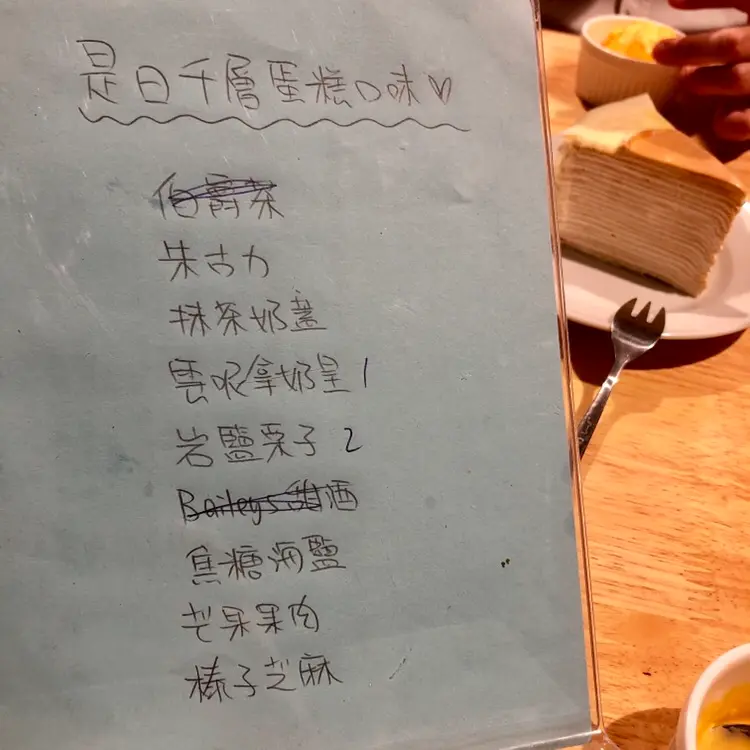 是日千層蛋糕口味♡
伯爵茶
朱古力
抹茶奶蓋
雲呢拿奶皇 1
岩鹽栗子 2
Baileys甜酒
焦糖海鹽
芒果果肉
榛子芝麻